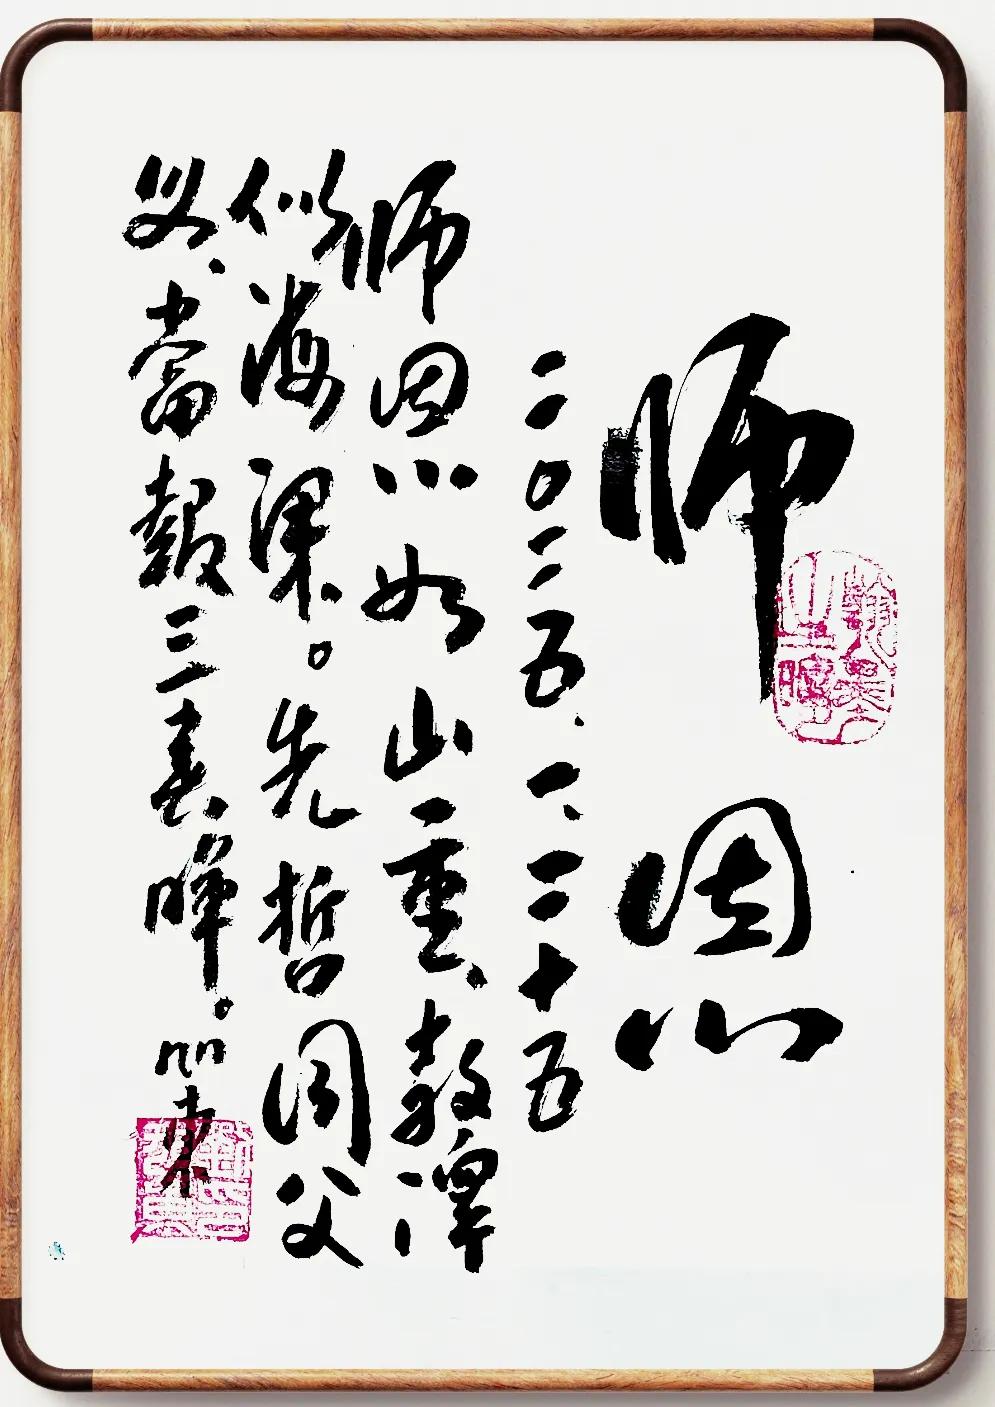 师恩
二〇二五.一、二十五
师恩如山重、教澤
似海深。先哲同父
母、當報三春暉。